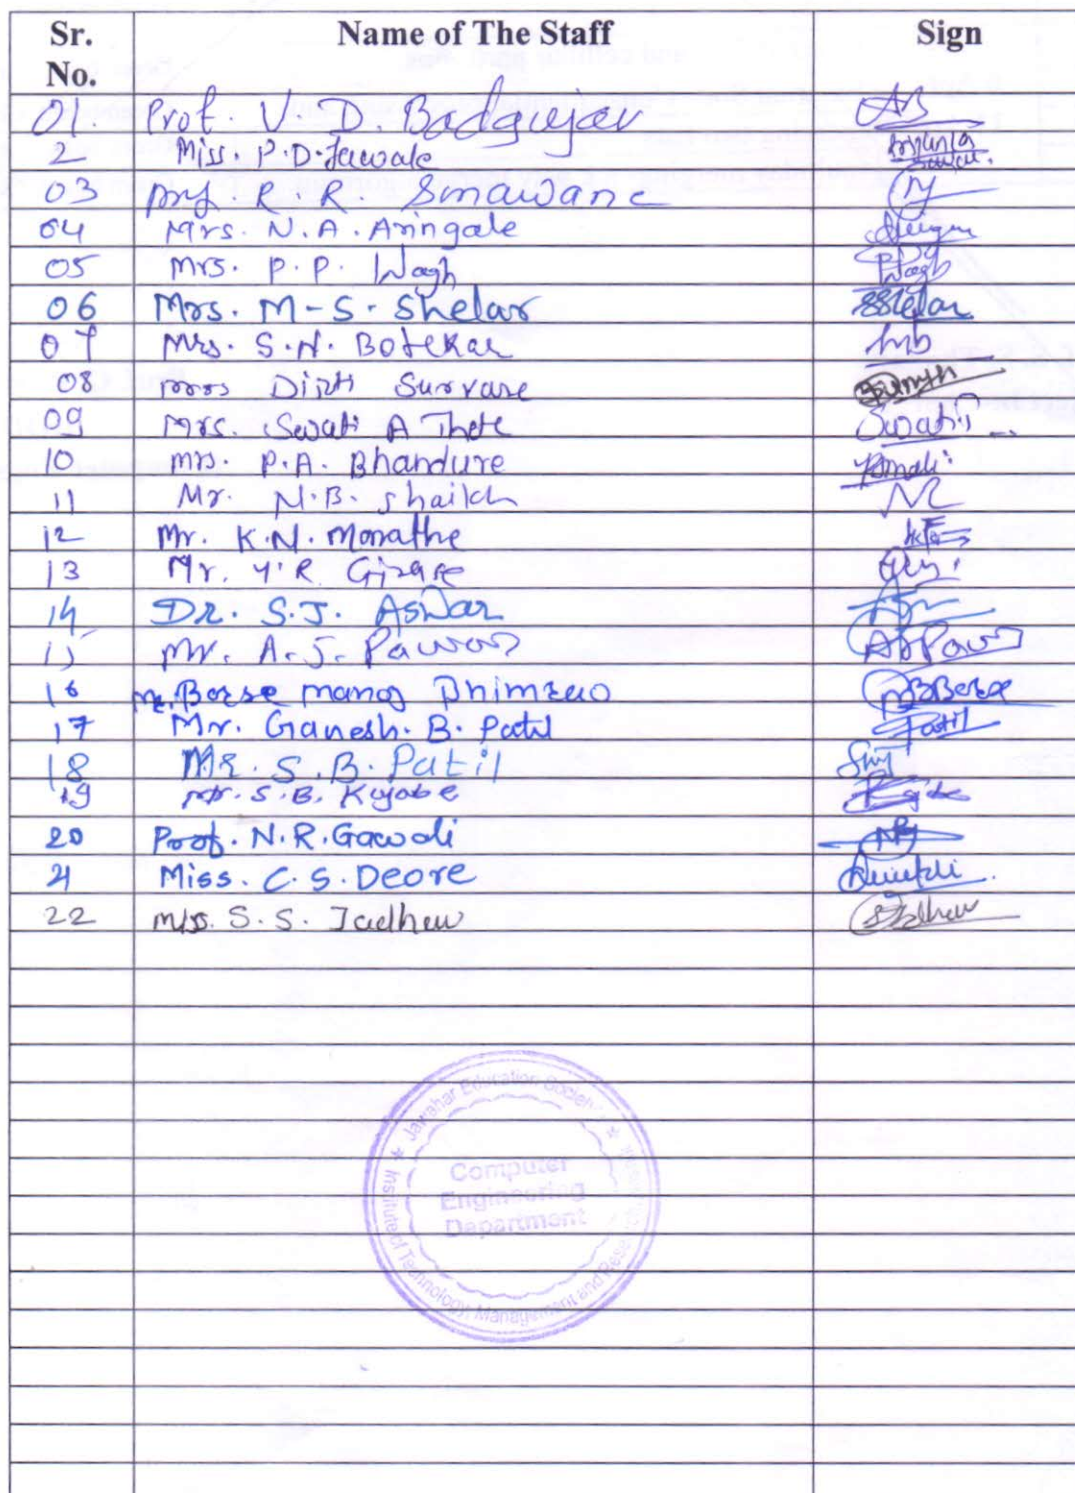 Sr. No. Name of The Staff Sign
01. Prof. V. D. Badgujar
2 Miss. P.D. Jawale
03 Prof. R. R. Sonawane
04 Mrs. N.A. Aringale
05 Mrs. P.P. Wagh Wagh
06 Mrs. M-S. Shelar SShelar
07 Mrs. S.N. Botekar
08 Mrs Dipti Survase
09 Mrs. Swati A Thete Swati
10 Mrs. P.A. Bhandure
11 Mr. N.B. Shaikh
12 Mr. K.N. Marathe
13 Mr. Y.R Girase
14 DR. S.J. Aswar
15 Mr. A.J. Pawar AJPawar
16 Mr. Borse Manoj Bhimrao MBBorse
17 Mr. Ganesh. B. Patil Patil
18 MR. S. B. Patil
19 Mr. S.B. Kujabe
20 Prof. N.R. Gawali
21 Miss. C. S. Deore
22 Miss. S. S. Jadhav SJadhav
Jawahar Education Society's
Institute of Technology, Management and Research
Computer
Engineering
Department